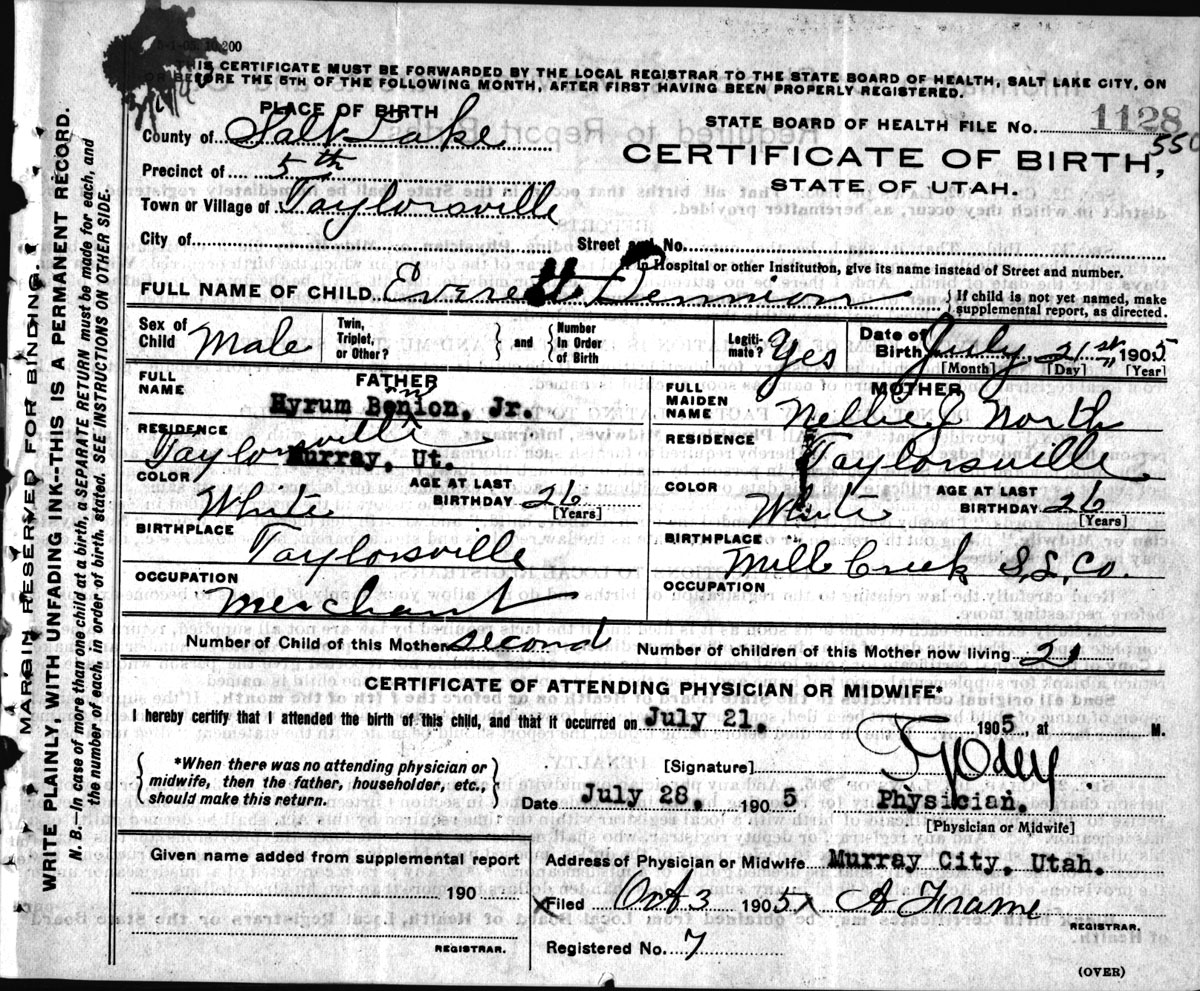 5-1-05. 10,200
THIS CERTIFICATE MUST BE FORWARDED BY THE LOCAL REGISTRAR TO THE STATE BOARD OF HEALTH, SALT LAKE CITY, ON
OR BEFORE THE 5TH OF THE FOLLOWING MONTH, AFTER FIRST HAVING BEEN PROPERLY REGISTERED.
PLACE OF BIRTH
County of Salt Lake
STATE BOARD OF HEALTH FILE No. 1128
550
Precinct of 5th
CERTIFICATE OF BIRTH,
STATE OF UTAH.
Town or Village of Taylorsville
City of Street and No.
If in Hospital or other Institution, give its name instead of Street and number.
FULL NAME OF CHILD Everett Bennion
If child is not yet named, make
supplemental report, as directed.
Sex of Child Male
Twin, Triplet, or Other? and Number In Order of Birth
Legiti-mate? Yes
Date of Birth July 21st, 1905
[Month] [Day] [Year]
FATHER
FULL NAME Hyrum Benion, Jr.
n
RESIDENCE Taylorsville
Murray, Ut.
COLOR White
AGE AT LAST BIRTHDAY 26
[Years]
BIRTHPLACE Taylorsville
OCCUPATION Merchant
MOTHER
FULL MAIDEN NAME Nellie J North
RESIDENCE Taylorsville
COLOR White
AGE AT LAST BIRTHDAY 26
[Years]
BIRTHPLACE Mill Creek S.L. Co.
OCCUPATION
Number of Child of this Mother second Number of children of this Mother now living 2
CERTIFICATE OF ATTENDING PHYSICIAN OR MIDWIFE*
I hereby certify that I attended the birth of this child, and that it occurred on July 21. 1905, at M.
*When there was no attending physician or
midwife, then the father, householder, etc.,
should make this return.
[Signature]
Date July 28, 1905 Physician.
[Physician or Midwife]
Given name added from supplemental report
190
REGISTRAR.
Address of Physician or Midwife Murray City, Utah.
Filed Oct 3 1905 A Frame
REGISTRAR.
Registered No. 7
(OVER)
MARGIN RESERVED FOR BINDING.
WRITE PLAINLY, WITH UNFADING INK--THIS IS A PERMANENT RECORD.
N. B.--In case of more than one child at a birth, a SEPARATE RETURN must be made for each, and
the number of each, in order of birth, stated. SEE INSTRUCTIONS ON OTHER SIDE.